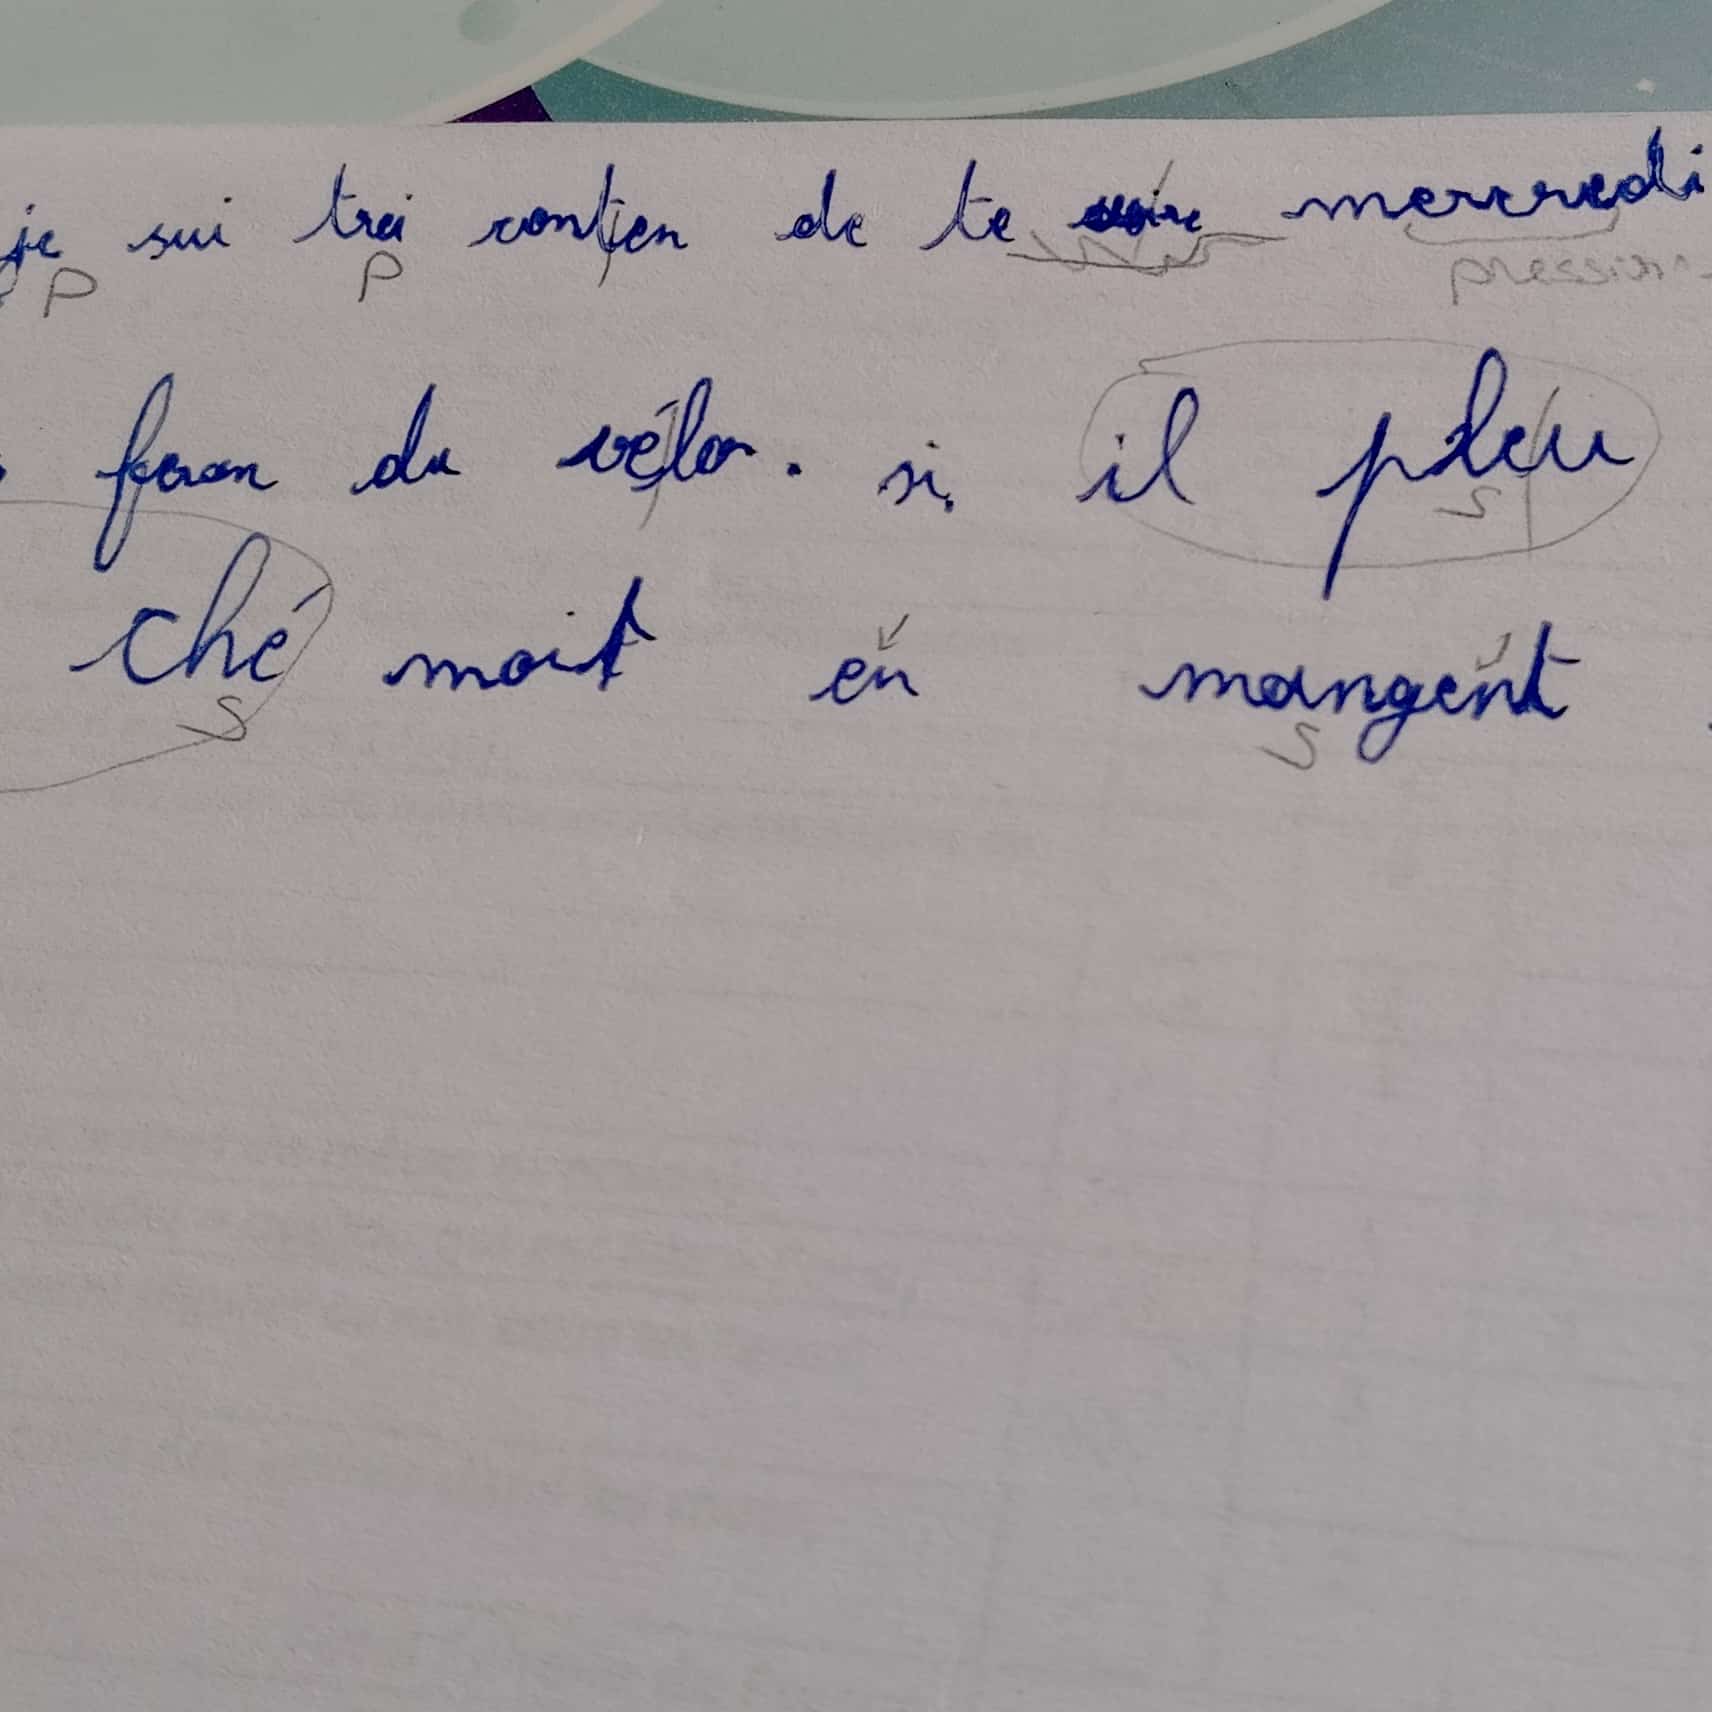 je sui trei conten de te voire mercredi
P P pression
feron du vélo. si il pleu
s
ché moit en mangent
s s